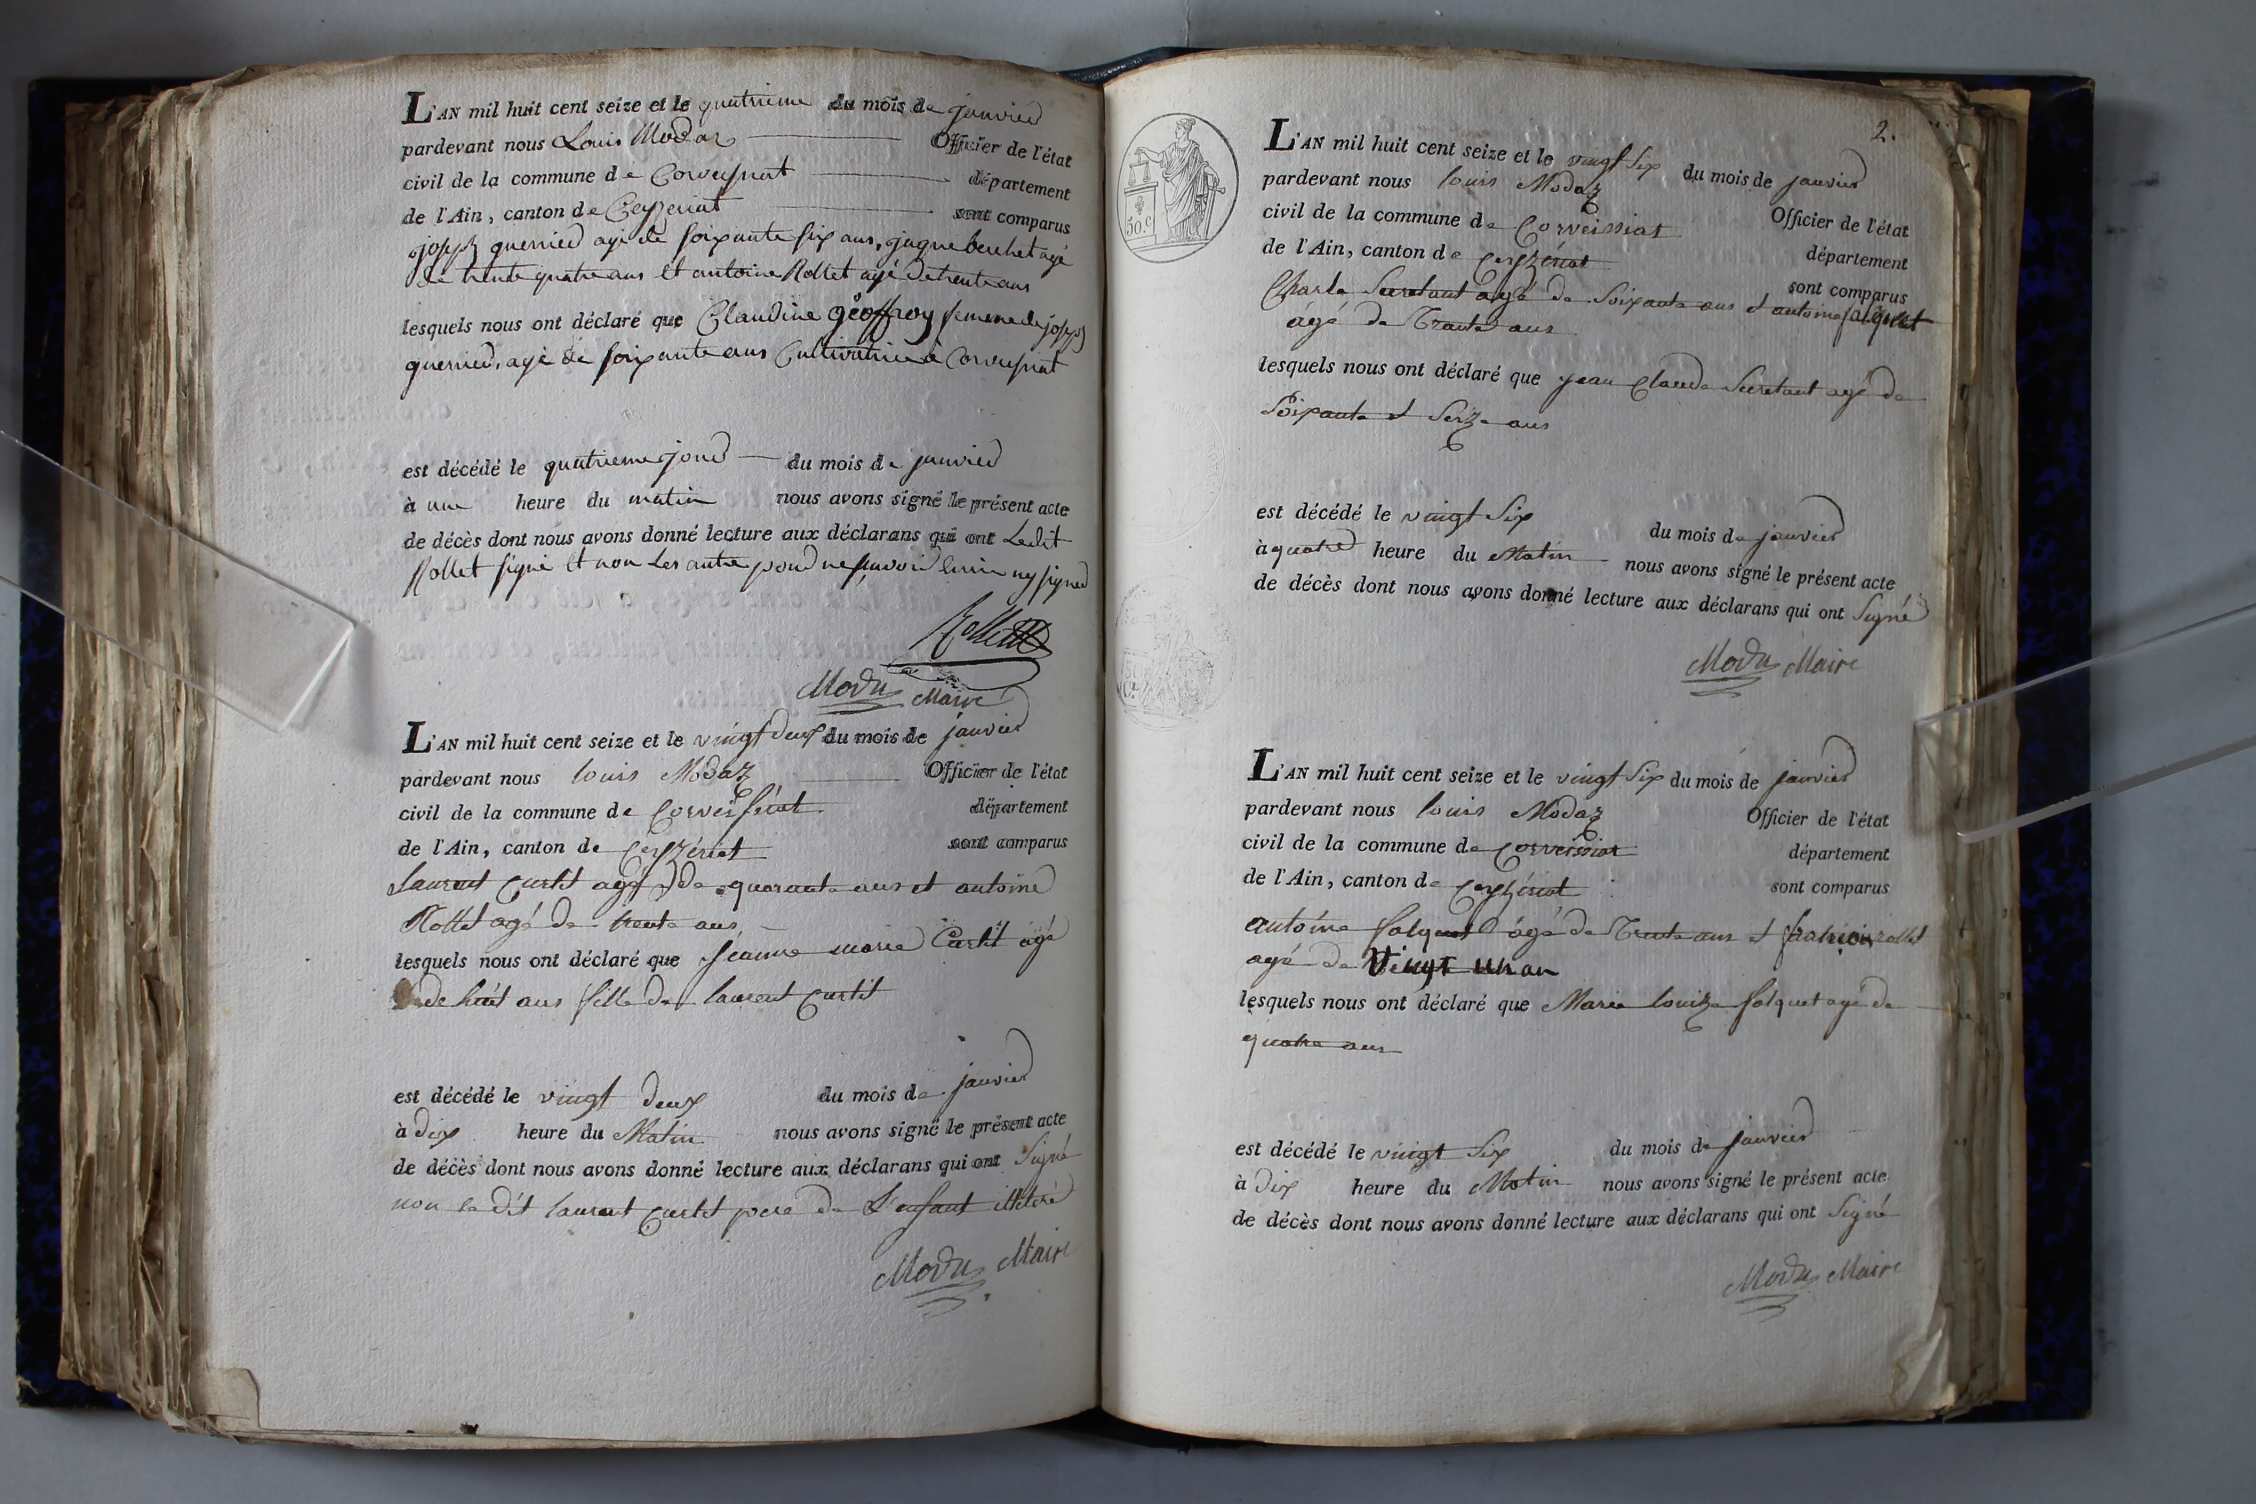 L'AN mil huit cent seize et le quatrieme du mois de janvier
pardevant nous Louis Modaz Officier de l'état
civil de la commune de Corveysiat département
de l'Ain, canton de Ceyzeriat sont comparus
joseph guerrier agé de soixante six ans, jaque berchet agé
de trente quatre ans et antoine Rollet agé de trente ans
lesquels nous ont déclaré que Claudine geoffroy femme de joseph
guerrier, agé de soixante ans Cultivatrice à Corveysiat
est décédé le quatrieme jour du mois de janvier
à une heure du matin nous avons signé le présent acte
de décès dont nous avons donné lecture aux déclarans qui ont Ledit
Rollet signé et non Les autre pour ne savoir Ecrire ny signer
Rollet
Modas Maire
L'AN mil huit cent seize et le vingt deux du mois de janvier
pardevant nous louis Modaz Officier de l'état
civil de la commune de Corveissiat département
de l'Ain, canton de Ceyzériat sont comparus
laurent Curtit agé de quarante ans et antoine
Rollet agé de trente ans
lesquels nous ont déclaré que jeanne marie Curtit agé
de huit ans fille de laurent Curtit
est décédé le vingt deux du mois de janvier
à dix heure du Matin nous avons signé le présent acte
de décès dont nous avons donné lecture aux déclarans qui ont Signé
non le dit laurent Curtit pere de L'enfant illéteré
Modas Maire
2.
L'AN mil huit cent seize et le vingt Six du mois de janvier
pardevant nous louis Modaz Officier de l'état
civil de la commune de Corveissiat département
de l'Ain, canton de Ceyzériat sont comparus
Charle Secretant agé de Soixante ans et antoine falquet
âgé de Trente ans
lesquels nous ont déclaré que jean Claude Secretant agé de
Soixante et Seize ans
est décédé le vingt Six du mois de janvier
à quatre heure du Matin nous avons signé le présent acte
de décès dont nous avons donné lecture aux déclarans qui ont Signé
Modas Maire
50.C
L'AN mil huit cent seize et le vingt Six du mois de janvier
pardevant nous louis Modaz Officier de l'état
civil de la commune de Corveissiat département
de l'Ain, canton de Ceyzériat sont comparus
antoine falquet âgé de Trente ans et rollet
agé de Vingt un an
lesquels nous ont déclaré que Marie louize falquet agé de
quatre ans
est décédé le vingt Six du mois de janvier
à dix heure du Matin nous avons signé le présent acte
de décès dont nous avons donné lecture aux déclarans qui ont Signé
Modas Maire